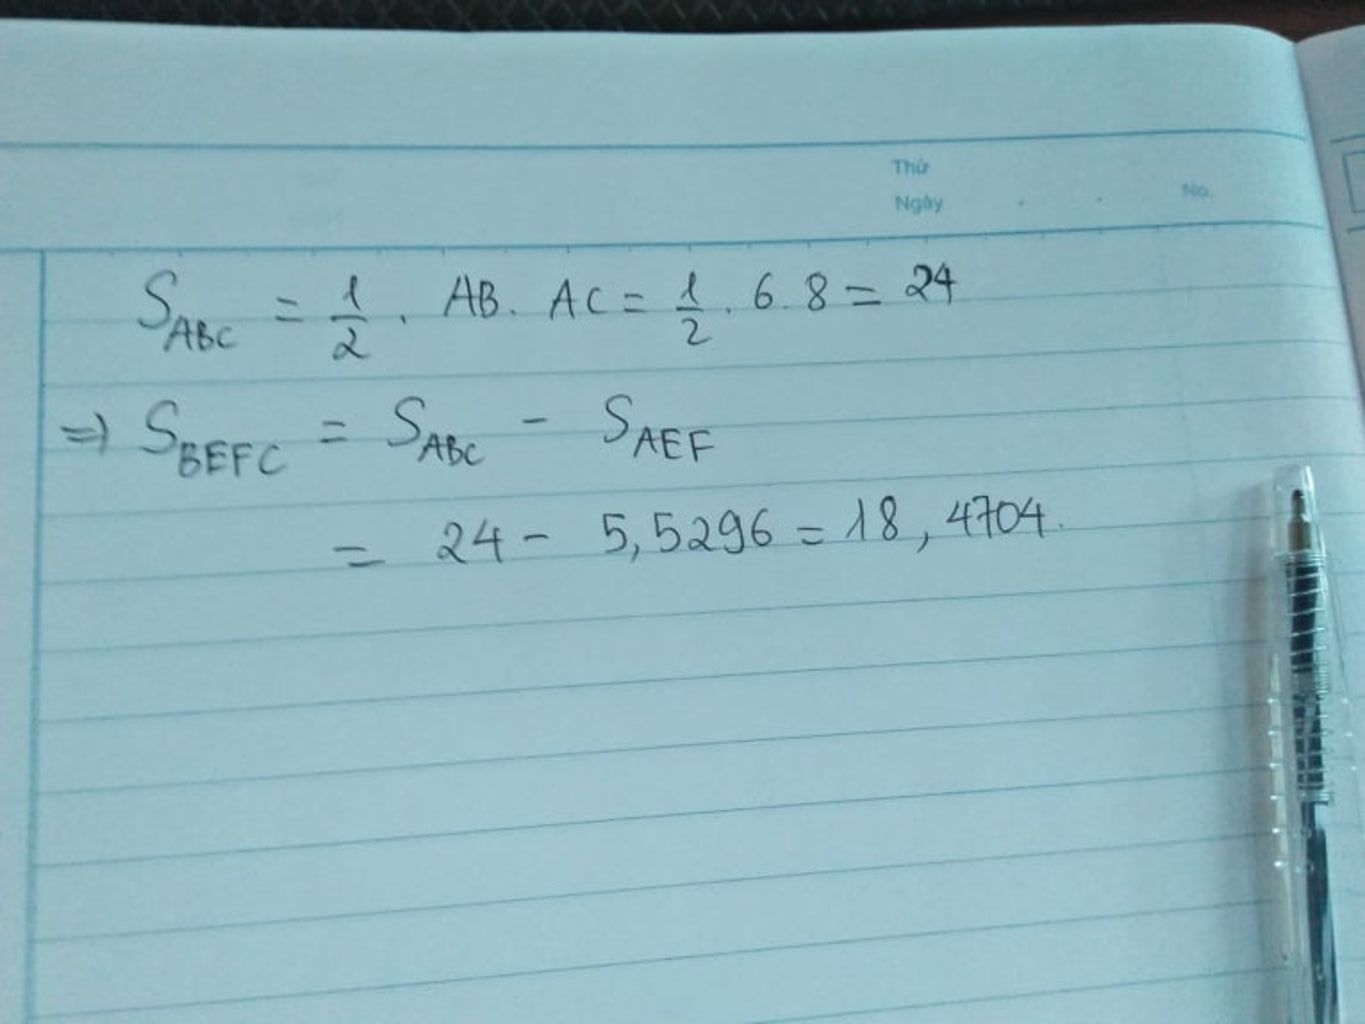 Thứ
Ngày . . No.
S_ABC = 1/2 . AB. AC = 1/2 . 6. 8 = 24
=) S_BEFC = S_ABC - S_AEF
= 24 - 5,5296 = 18,4704.